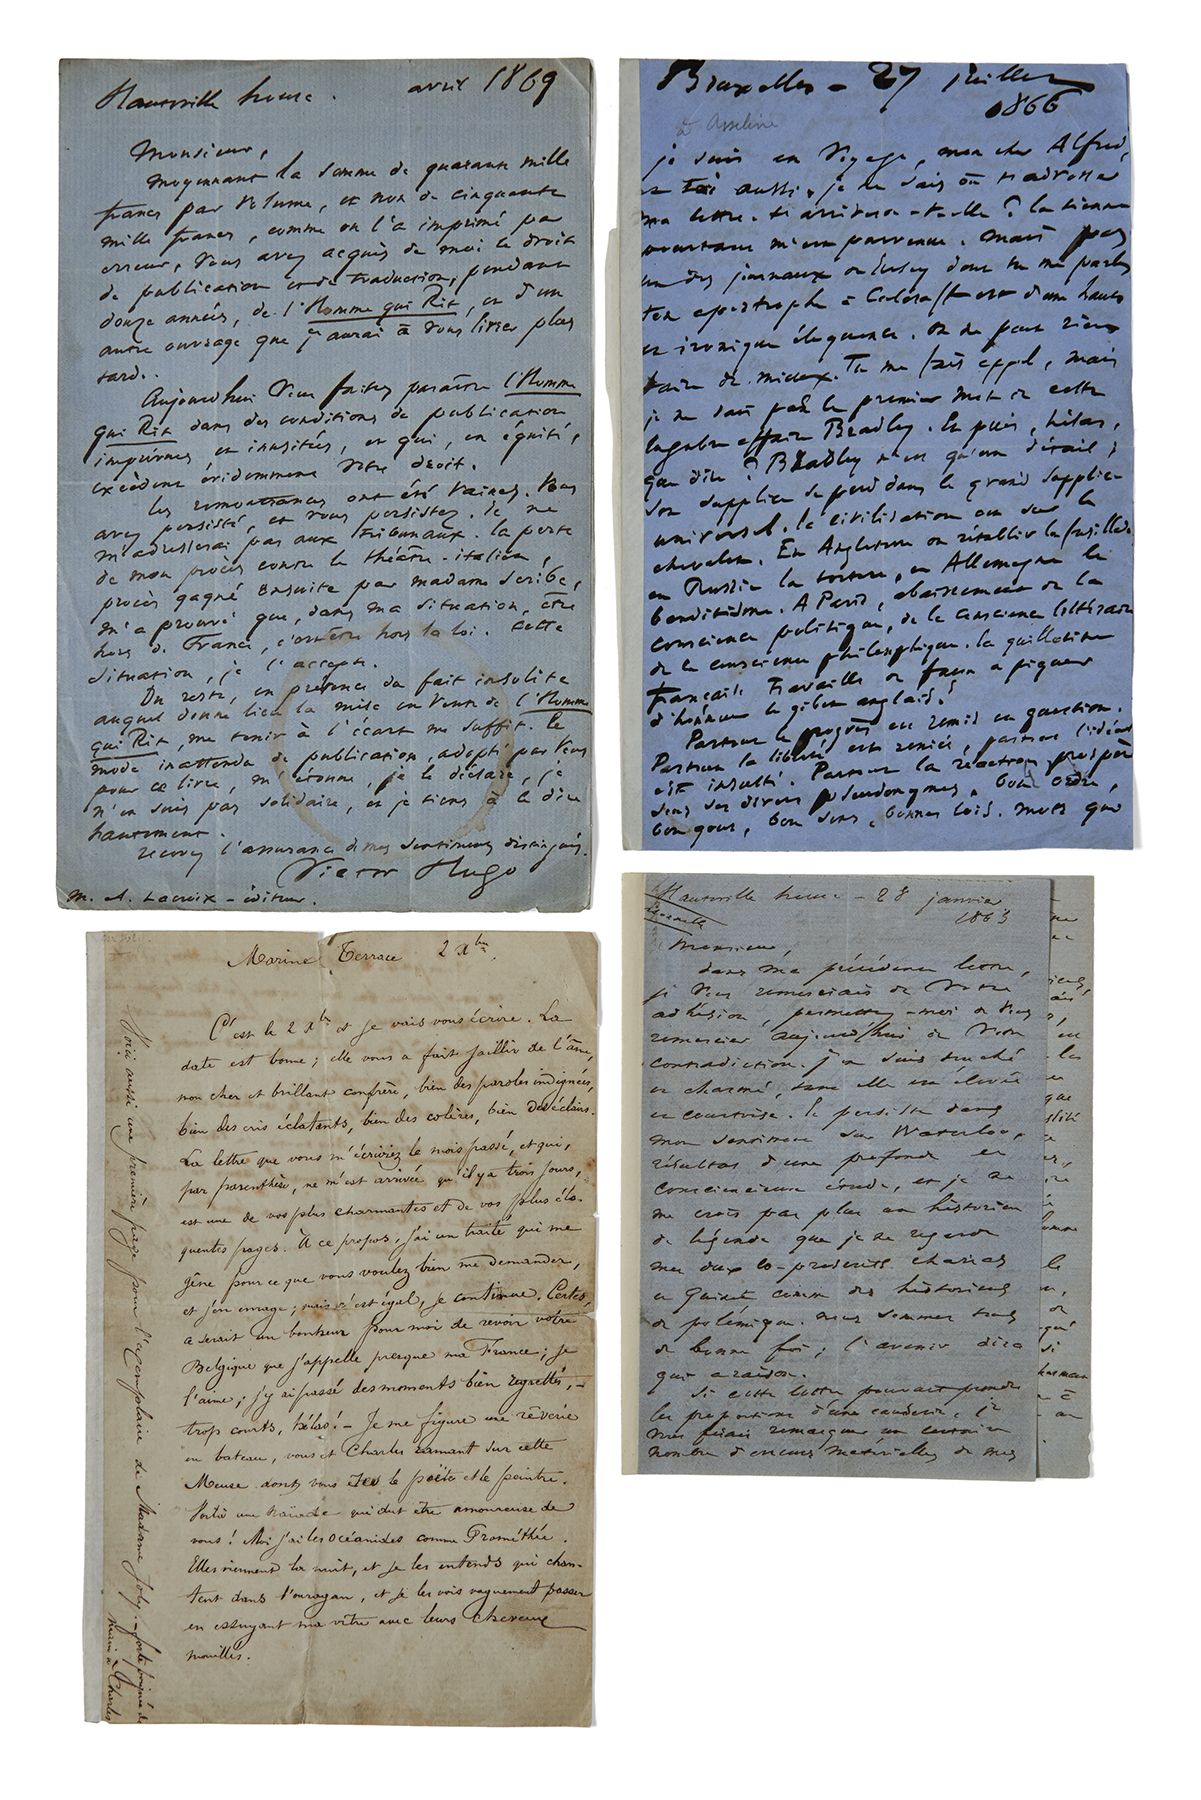 Hauteville house. avril 1869
Monsieur,
Moyennant la somme de quarante mille
francs par volume, et non de cinquante
mille francs, comme on l'a imprimé par
erreur, vous avez acquis de moi le droit
de publication et de traduction, pendant
douze années, de l'Homme qui Rit, et d'un
autre ouvrage que j'aurai à vous livrer plus
tard.
Aujourd'hui vous faites paraître l'Homme
qui Rit dans des conditions de publication
imprévues et inusitées, et qui, en équité,
excèdent évidemment votre droit.
les remontrances ont été vaines. Vous
avez persisté, et vous persistez. Je ne
m'adresserai pas aux tribunaux. la perte
de mon procès contre le théâtre-italien,
procès gagné ensuite par madame Scribe,
m'a prouvé que, dans ma situation, être
hors de France, c'est être hors la loi. Cette
situation, je l'accepte.
Du reste, en présence du fait insolite
auquel donne lieu la mise en vente de l'Homme
qui Rit, me tenir à l'écart me suffit. le
mode inattendu de publication, adopté par vous
pour ce livre, m'étonne, je le déclare, je
n'en suis pas solidaire, et je tiens à le dire
hautement.
recevez l'assurance de mes sentiments distingués.
Victor Hugo
M. A. Lacroix - éditeur.
Bruxelles - 27 juillet
1866
à Asseline
je suis en voyage, mon cher Alfred,
et toi aussi, je ne sais où t'adresser
ma lettre. t'arrivera-t-elle ? la tienne
pourtant m'est parvenue. Mais pas
un des journaux de Jersey dont tu me parles
ton apostrophe à est d'une haute
et ironique éloquence. On ne peut rien
faire de mieux. Tu me fais appel, mais
je ne sais pas le premier mot de cette
lugubre affaire Bradley. Et puis, hélas,
que dire ? Bradley n'est qu'un détail ;
son supplice se perd dans le grand supplice
universel. la civilisation en ce moment est sur le
chevalet. En Angleterre on rétablit la fusillade
en Russie la torture, en Allemagne le
banditisme. A Paris, abaissement de la
conscience politique, de la conscience littéraire
de la conscience philosophique. la guillotine
française travaille de façon à piquer
d'honneur le gibet anglais.
Partout le progrès est remis en question.
Partout la liberté est reniée, partout l'idéal
est insulté. Partout la réaction prospère
sous ses divers pseudonymes, bon ordre,
bon goût, bon sens, bonnes lois. mots qui
Marine Terrace 2 Xbre
C'est le 2 Xbre et je vais vous écrire. La
date est bonne ; elle vous a fait jaillir de l'âme,
mon cher et brillant confrère, bien des paroles indignées,
bien des cris éclatants, bien des colères, bien des éclairs.
La lettre que vous m'écriviez le mois passé, et qui,
par parenthèse, ne m'est arrivée qu'il y a trois jours,
est une de vos plus charmantes et de vos plus élo-
quentes pages. À ce propos, j'ai un traité qui me
gêne pour ce que vous voulez bien me demander,
et j'en enrage ; mais c'est égal, je continue. Certes,
ce serait un bonheur pour moi de revoir votre
Belgique que j'appelle presque ma France ; je
l'aime ; j'y ai passé des moments bien regrettés, -
trop courts, hélas ! - Je me figure une rêverie
en bateau, vous et Charles ramant sur cette
Meuse dont vous êtes le poëte et le peintre.
Voilà une naïade qui dut être amoureuse de
vous ! Moi j'ai les Océanides comme Prométhée.
Elles viennent la nuit, et je les entends qui chan-
tent dans l'ouragan, et je les vois vaguement passer
en essuyant ma vitre avec leurs cheveux
mouillés.
Voici aussi une première page pour l'exemplaire de Madame Joly.
Hauteville house - 28 janvier
1863
Monsieur,
dans ma précédente lettre,
je vous remerciais de votre
adhésion, permettez-moi de vous
remercier aujourd'hui de votre
contradiction. j'en suis touché
et charmé, tant elle est élevée
et courtoise. Je persiste dans
mon sentiment sur Waterloo,
résultat d'une profonde et
consciencieuse étude, et je ne
me crois pas plus un historien
de légende que je ne regarde
mes deux co-proscrits Charras
et Quinet comme des historiens
de polémique. nous sommes tous
de bonne foi ; l'avenir dira
qui a raison.
Si cette lettre pouvait prendre
les proportions d'une causerie, je
vous ferais remarquer un certain
nombre d'erreurs matérielles de mes